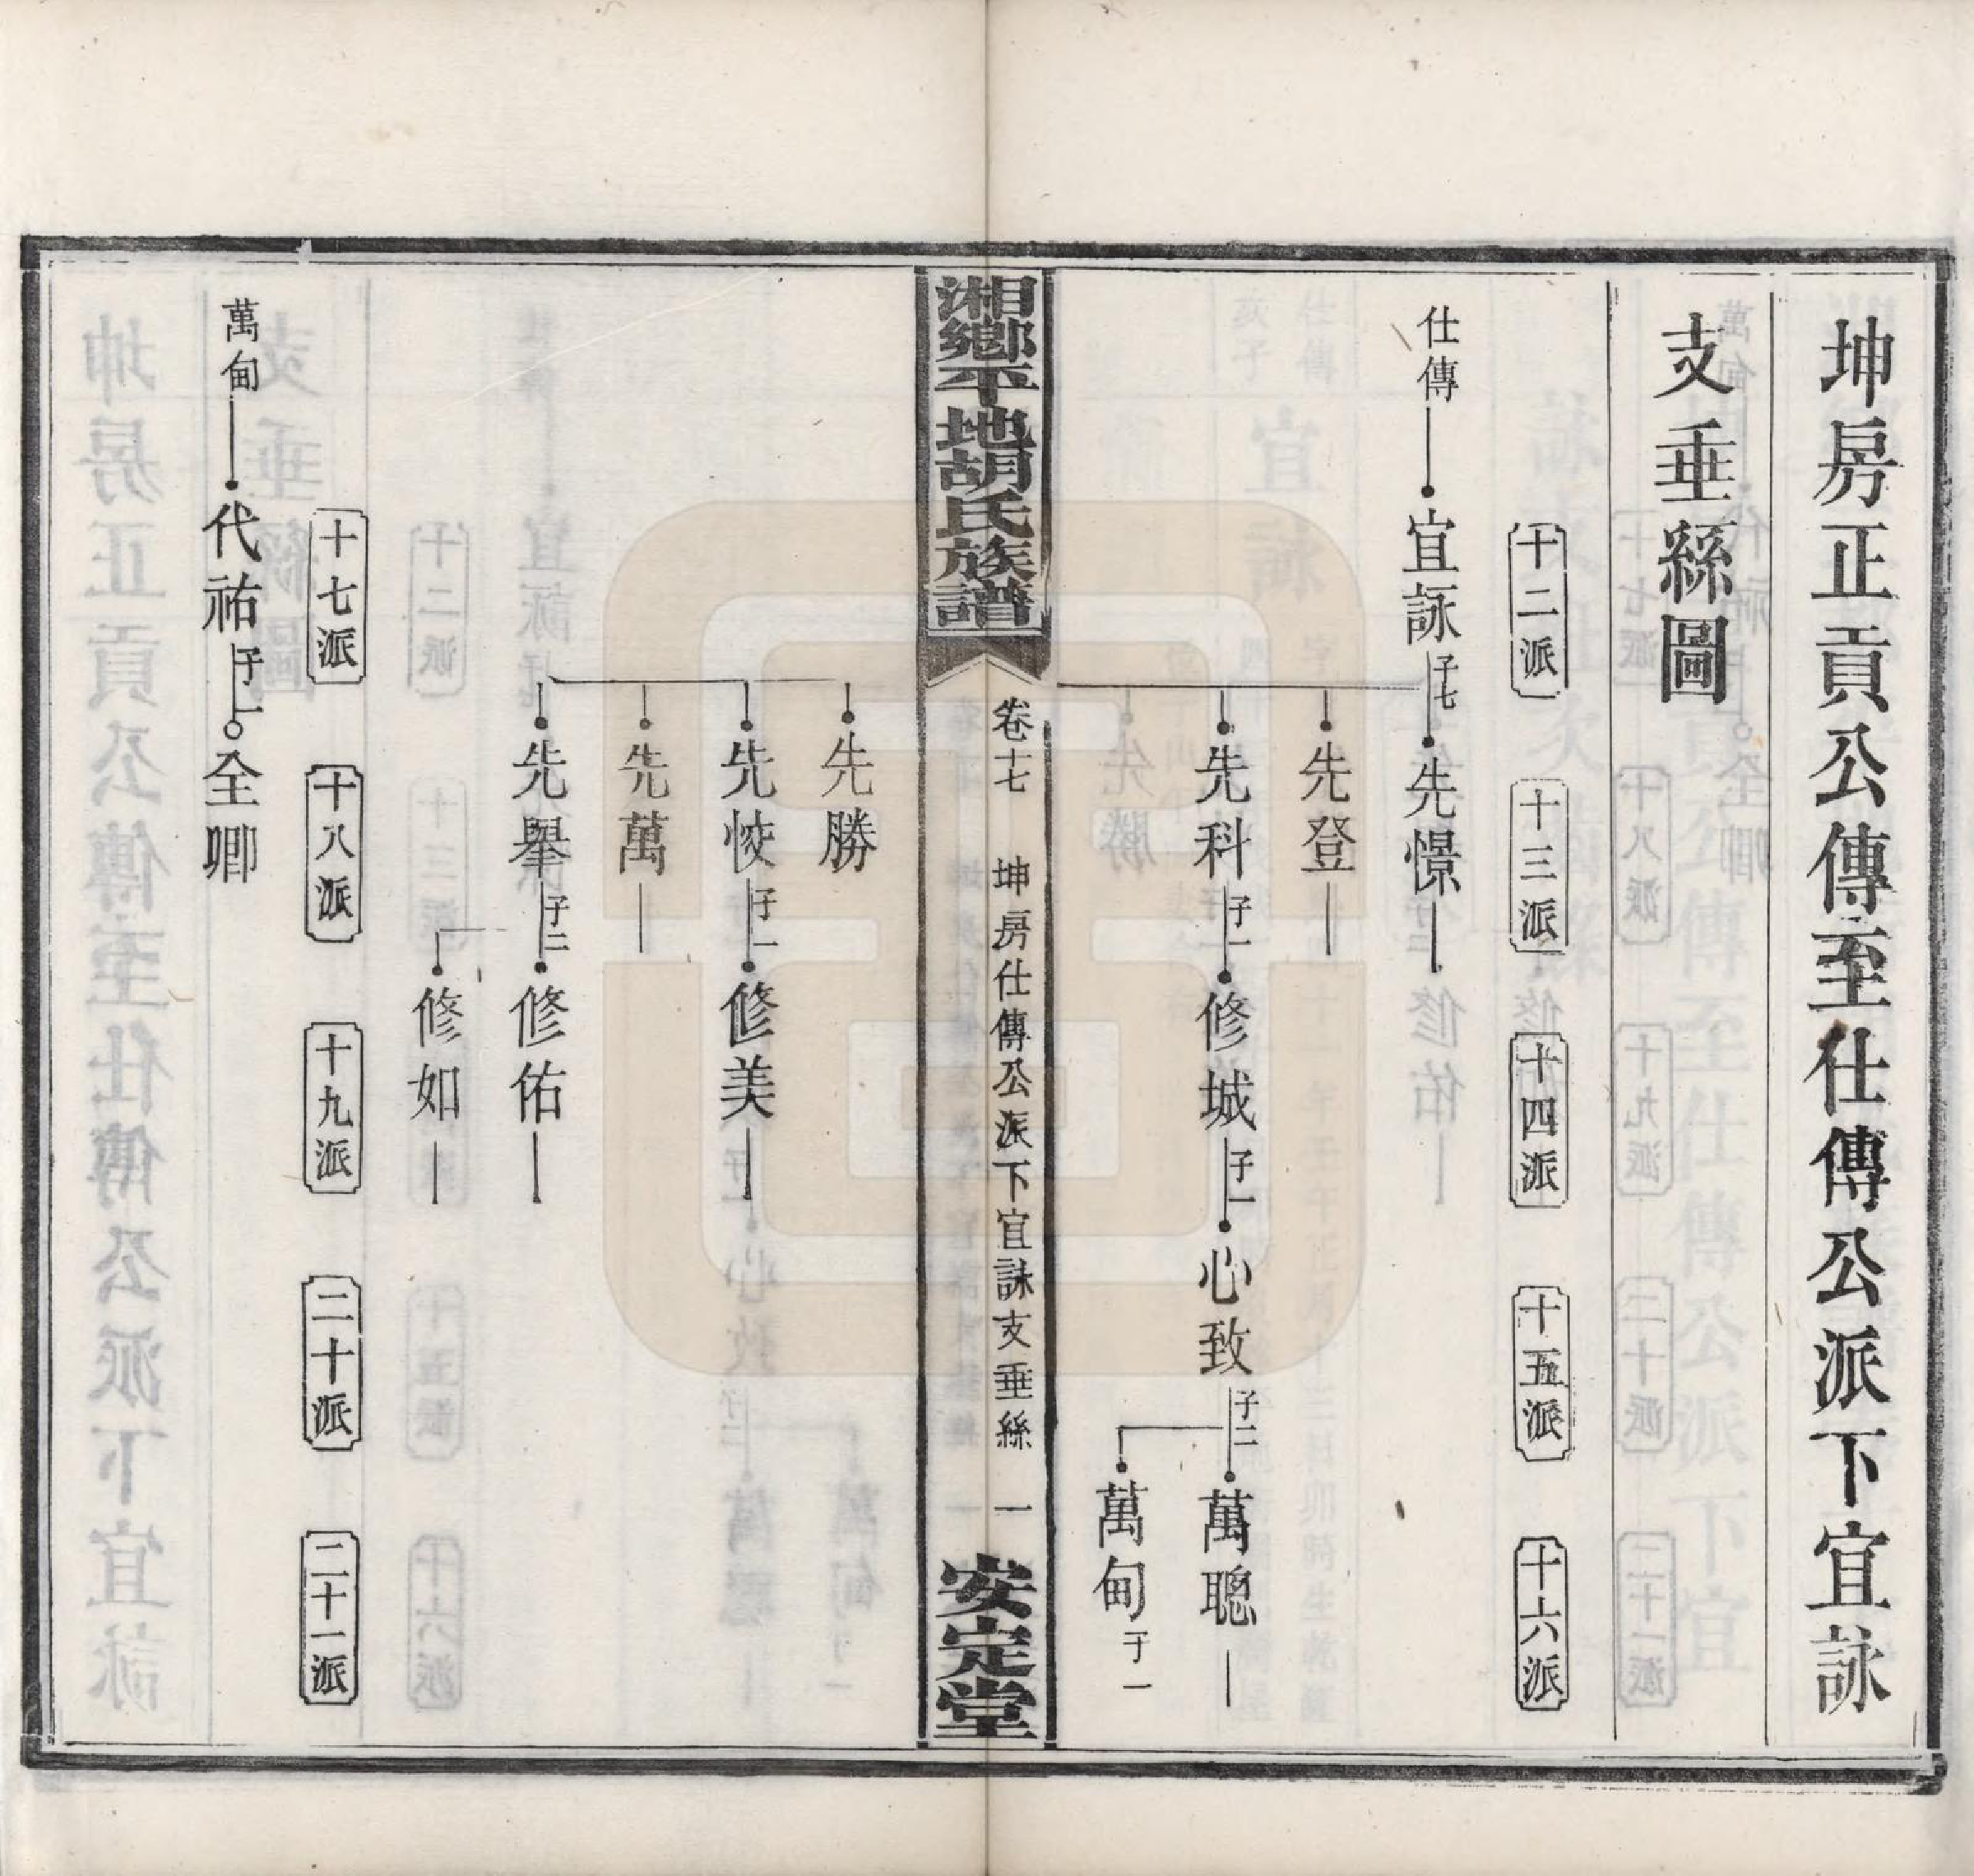 坤房正貢公傳至仕傳公派下宜詠
支垂絲圖
十二派
十三派
十四派
十五派
十六派
仕傳
宜詠
子七
先憬
先登
先科
子一
修城
子一
心致
子二
萬聰
萬甸
子一
湘鄉平地胡氏族譜
卷十七
坤房仕傳公派下宜詠支垂絲
一
安定堂
先勝
先恔
子一
修美
先萬
先舉
子二
修佑
修如
十七派
十八派
十九派
二十派
二十一派
萬甸
代祐
子一
全卿